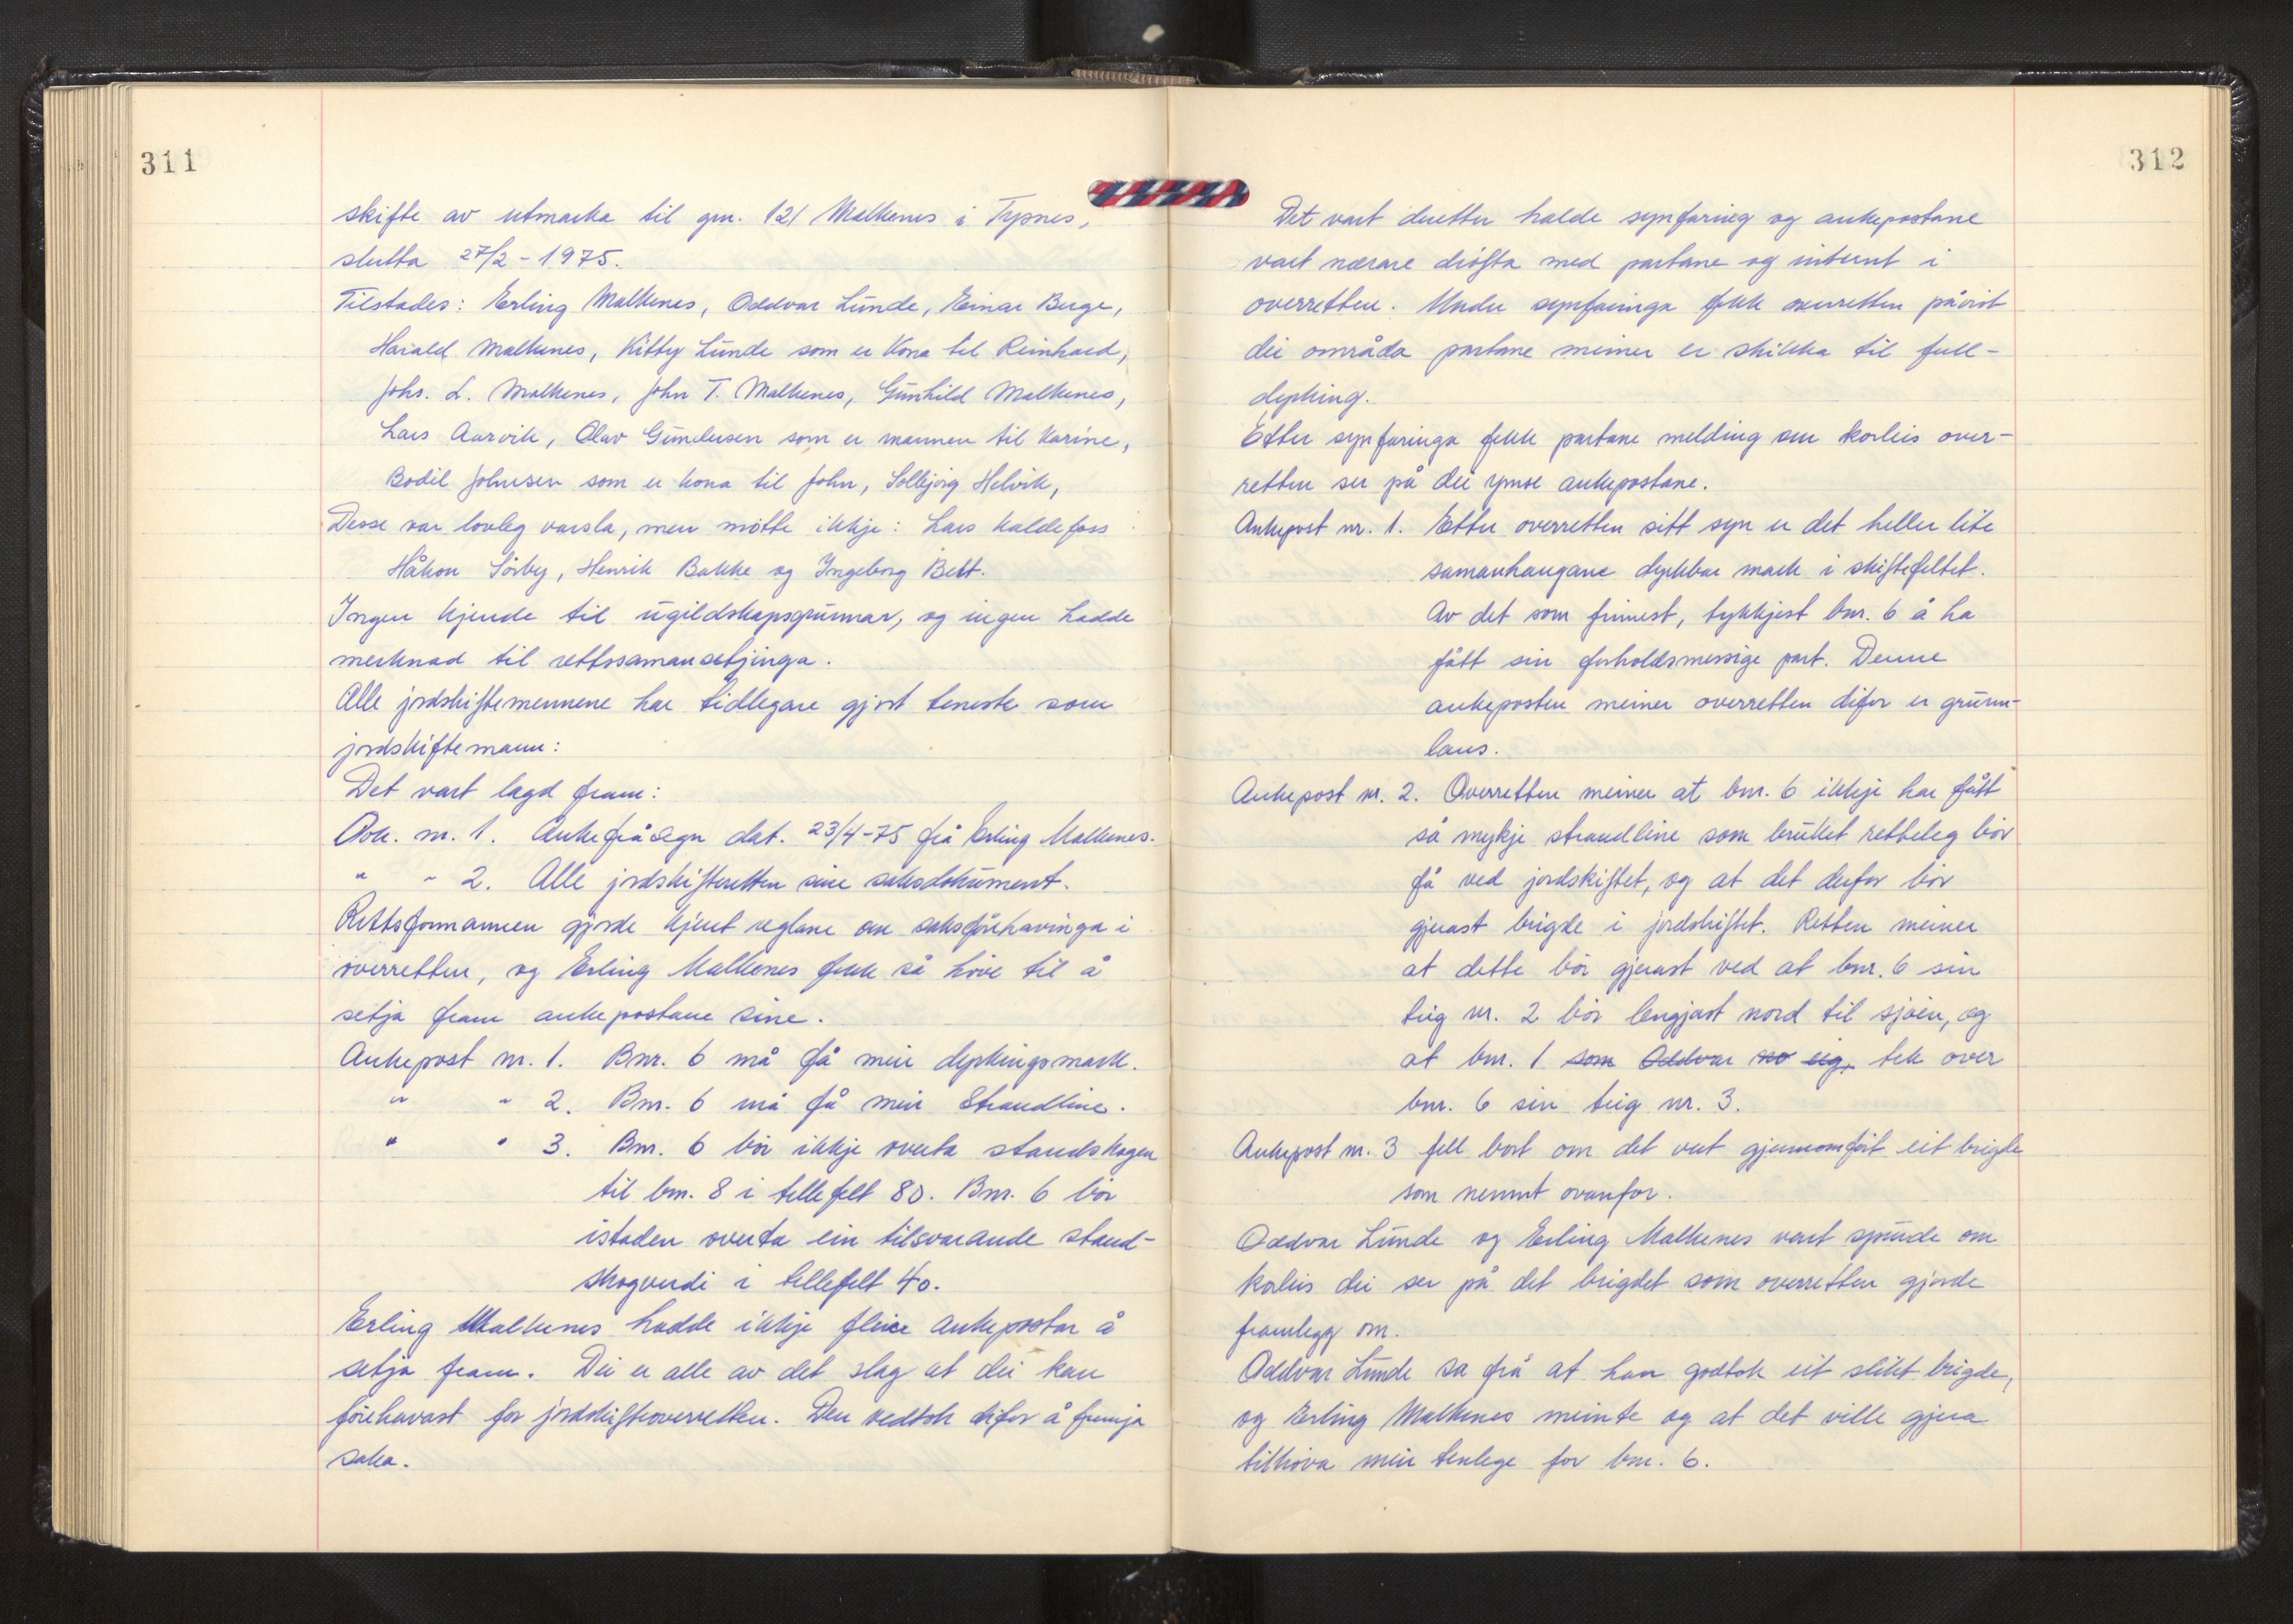 311
skifte av utmarka til gnr. 121 Malkenes i Tysnes,
slutta 27/2-1975.
Tilstades: Erling Malkenes, Oddvar Lunde, Einar Berge,
Harald Malkenes, Kitty Lunde som er kona til Reinhard,
Johs. L. Malkenes, John T. Malkenes, Gunhild Malkenes,
Lars Aarvik, Olav Gundersen som er mannen til Karine,
Bodil Johnsen som er kona til John, Solbjørg Helvik,
Desse var lovleg varsla, men møtte ikkje: Lars Kaldefoss
Håkon Sørby, Henrik Bakke og Ingeborg Bett.
Ingen kjende til ugildskapsgrunnar, og ingen hadde
merknad til rettssamansetjinga.
Alle jordskiftemennene har tidlegare gjort teneste som
jordskiftemann:
Det vart lagd fram:
Dok. nr. 1. Ankefråsegn dat. 23/4-75 frå Erling Malkenes.
" " 2. Alle jordskifteretten sine saksdokument.
Rettsformannen gjorde kjent reglane om saksførehavinga i
overretten, og Erling Malkenes fekk så høve til å
setja fram ankepostane sine.
Ankepost nr. 1. Bnr. 6 må få meir dyrkingsmark.
" " 2. Bnr. 6 må få meir strandline.
" " 3. Bnr. 6 bør ikkje overta standskogen
til bnr. 8 i tellefelt 80. Bnr. 6 bør
istaden overta ein tilsvarande stand-
skogverdi i tellefelt 40.
Erling Malkenes hadde ikkje fleire ankepostar å
setja fram. Dei er alle av det slag at dei kan
førehavast for jordskifteoverretten. Den vedtok difor å fremja
saka.
312
Det vart deretter halde synfaring og ankepostane
vart nærare drøfta med partane og internt i
overretten. Under synfaringa fekk overretten påvist
dei områda partane meiner er skikka til full-
dyrking.
Etter synfaringa fekk partane melding om korleis over-
retten ser på dei ymse ankepostane.
Ankepost nr. 1. Etter overretten sitt syn er det heller lite
samanhangane dyrkbar mark i skiftefeltet.
Av det som finnest, tykkjest bnr. 6 å ha
fått sin forholdsmessige part. Denne
ankeposten meiner overretten difor er grunn-
laus.
Ankepost nr. 2. Overretten meiner at bnr. 6 ikkje har fått
så mykje strandline som bruket retteleg bør
få ved jordskiftet, og at det derfor bør
gjerast brigde i jordskiftet. Retten meiner
at dette bør gjerast ved at bnr. 6 sin
teig nr. 2 bør lengjast nord til sjøen, og
at bnr. 1 som Oddvar no eig, tek over
bnr. 6 sin teig nr. 3.
Ankepost nr. 3 fell bort om det vert gjennomført eit brigde
som nemnt ovanfor.
Oddvar Lunde og Erling Malkenes vart spurde om
korleis dei ser på det brigdet som overretten gjorde
framlegg om.
Oddvar Lunde sa frå at han godtok eit slikt brigde,
og Erling Malkenes meinte og at det ville gjera
tilhøva meir tenlege for bnr. 6.